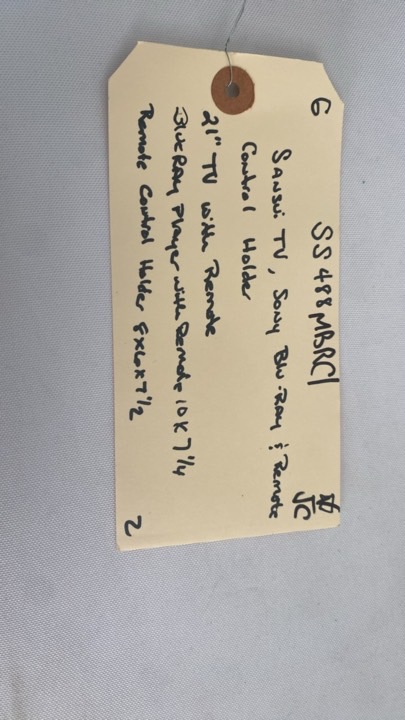 6 SS488MBRC1 ☆ JC
Sansui TV, Sony Blu-Ray & Remote
Control Holder
21" TV with Remote
BluRay Player with Remote 10 x 7 1/4
Remote Control Holder 8x6x7 1/2
2